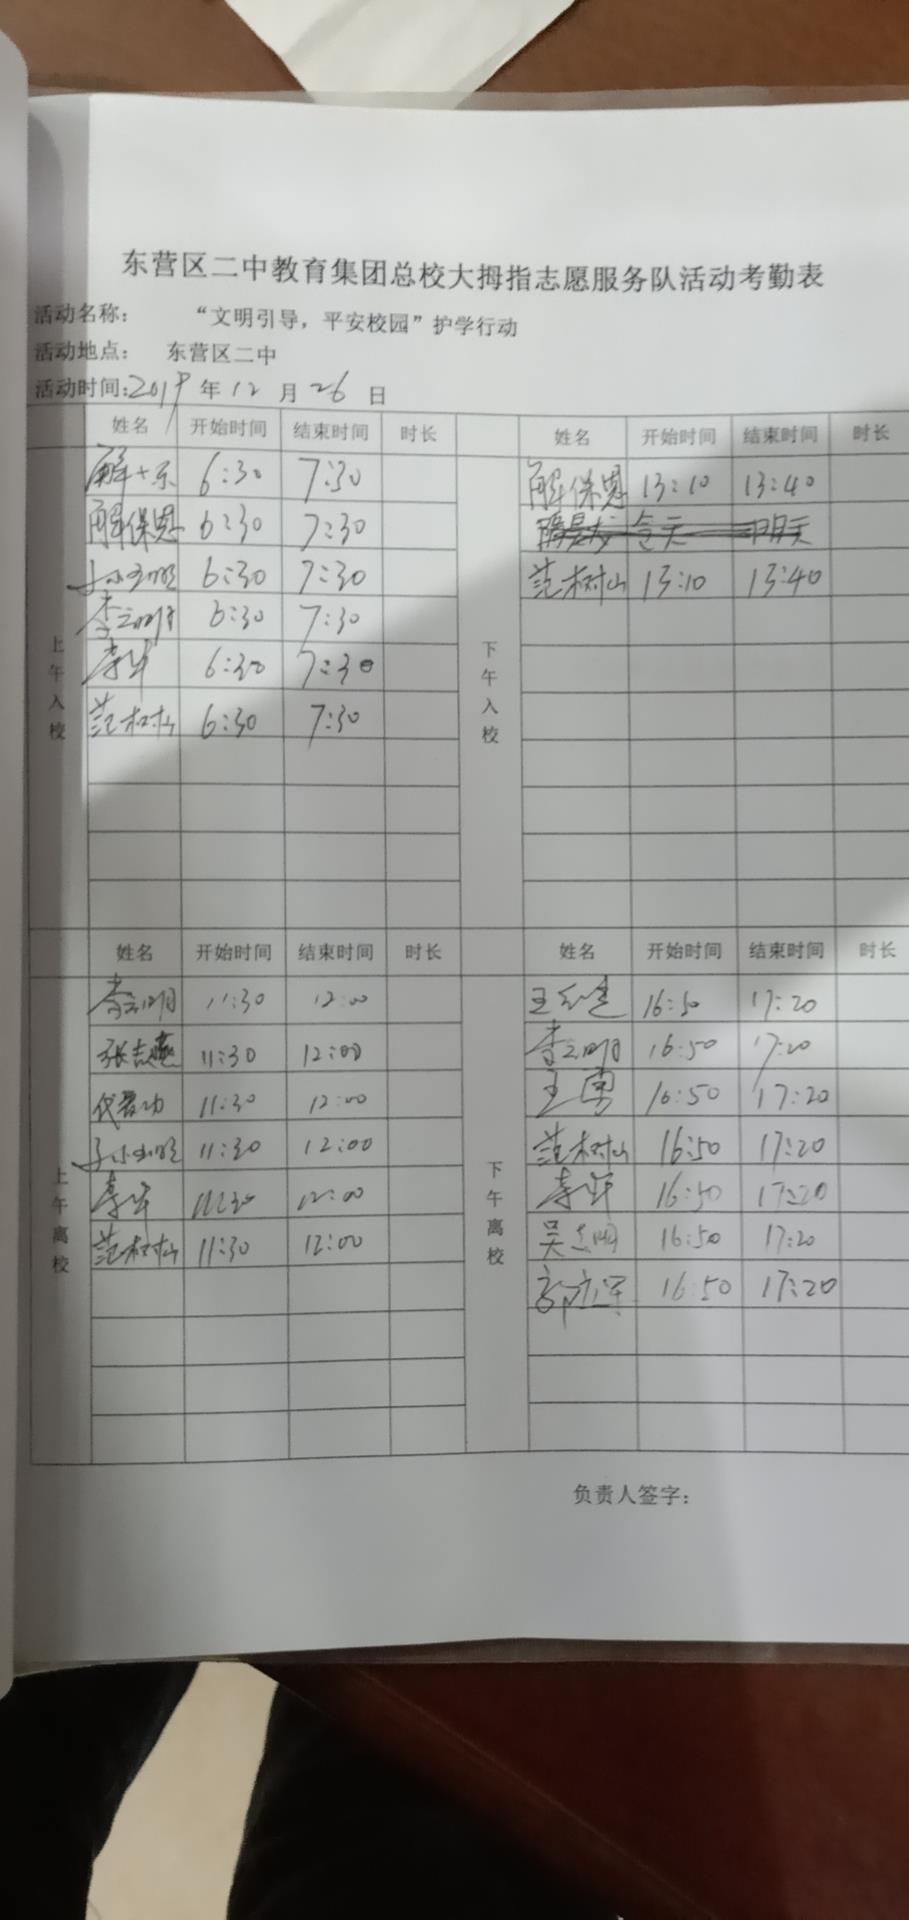 东营区二中教育集团总校大拇指志愿服务队活动考勤表
活动名称： “文明引导，平安校园”护学行动
活动地点： 东营区二中
活动时间：2019年12月26日
姓名 开始时间 结束时间 时长 姓名 开始时间 结束时间 时长
上午入校
6:30 7:30
解保恩 6:30 7:30
6:30 7:30
李云明 6:30 7:30
李军 6:30 7:30
范树山 6:30 7:30
下午入校
解保恩 13:10 13:40
今天 明天
范树山 13:10 13:40
姓名 开始时间 结束时间 时长 姓名 开始时间 结束时间 时长
上午离校
李云明 11:30 12:00
张志燕 11:30 12:00
11:30 12:00
11:30 12:00
李军 11:30 12:00
范树山 11:30 12:00
下午离校
16:50 17:20
李云明 16:50 17:20
王勇 16:50 17:20
范树山 16:50 17:20
李军 16:50 17:20
吴志明 16:50 17:20
16:50 17:20
负责人签字：